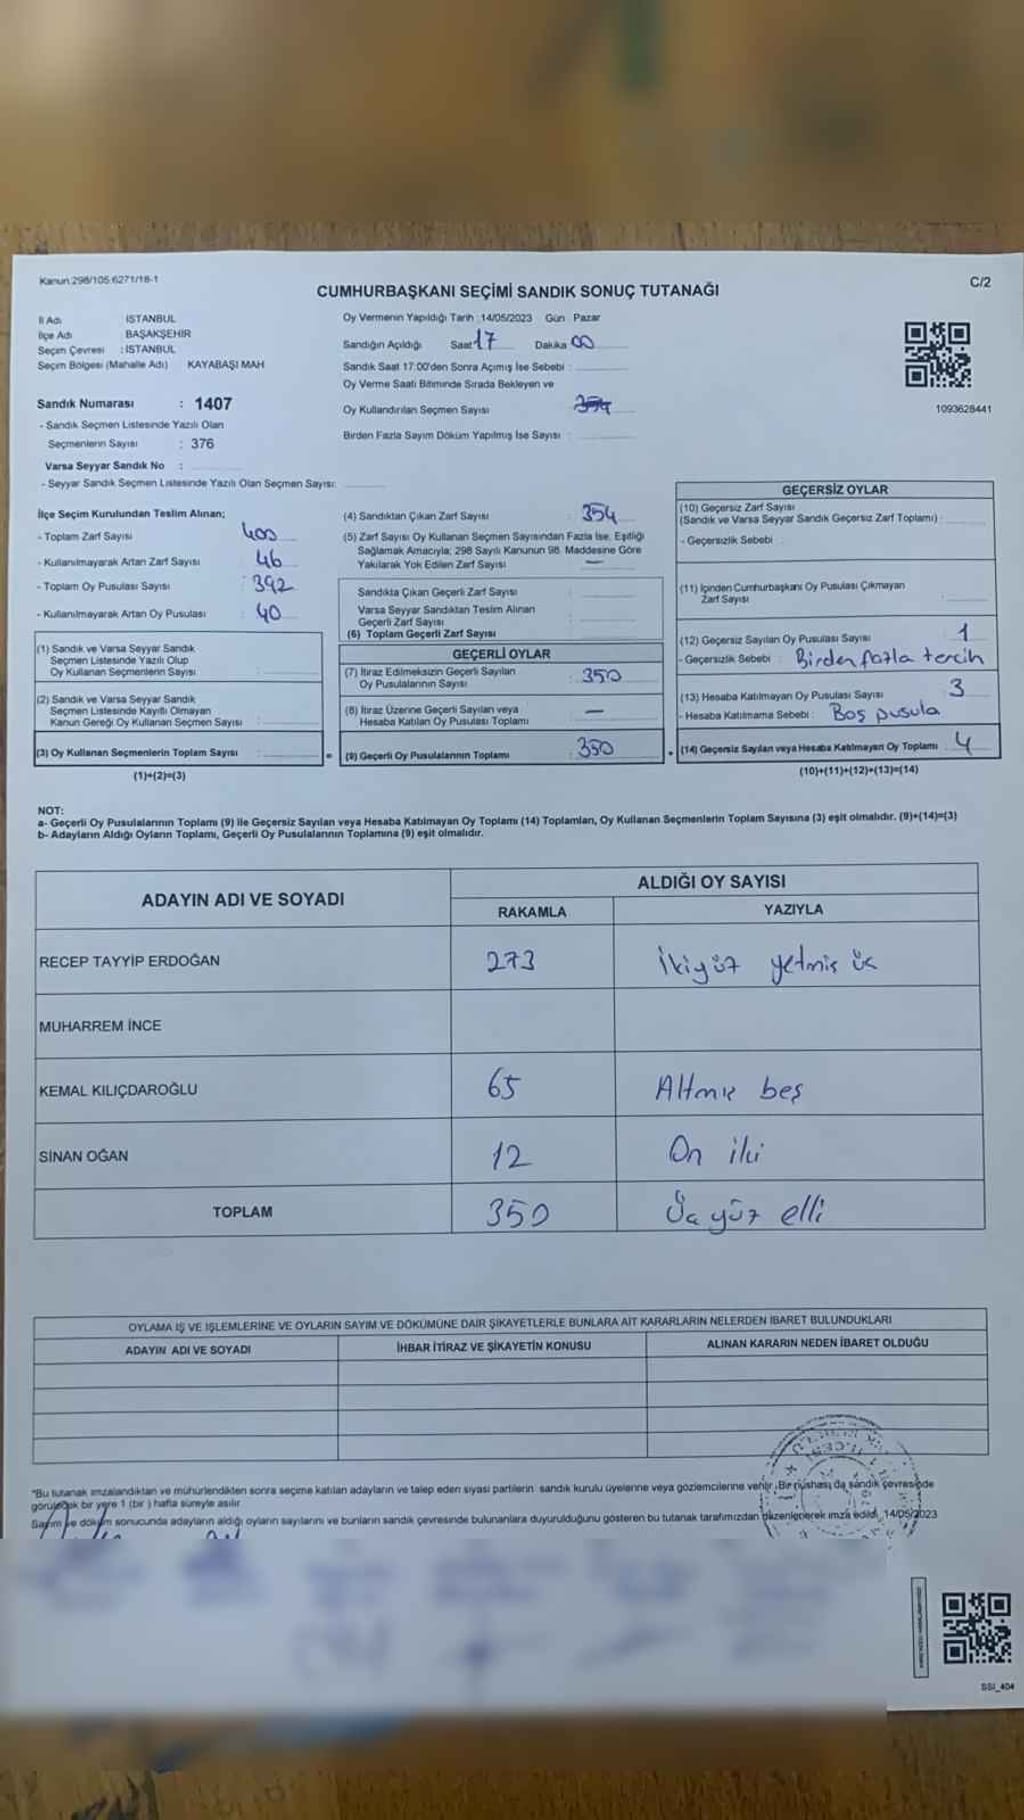 Kanun 298/105 6271/18-1
C/2
CUMHURBAŞKANI SEÇİMİ SANDIK SONUÇ TUTANAĞI
İl Adı İSTANBUL
İlçe Adı BAŞAKŞEHİR
Seçim Çevresi : İSTANBUL
Seçim Bölgesi (Mahalle Adı) KAYABAŞI MAH
Oy Vermenin Yapıldığı Tarih 14/05/2023 Gün Pazar
Sandığın Açıldığı Saat 17 Dakika 00
Sandık Saat 17:00'den Sonra Açılmış İse Sebebi :
Oy Verme Saati Bitiminde Sırada Bekleyen ve
Oy Kullandırılan Seçmen Sayısı
Birden Fazla Sayım Döküm Yapılmış İse Sayısı :
1093628441
Sandık Numarası : 1407
- Sandık Seçmen Listesinde Yazılı Olan
Seçmenlerin Sayısı : 376
Varsa Seyyar Sandık No :
- Seyyar Sandık Seçmen Listesinde Yazılı Olan Seçmen Sayısı:
İlçe Seçim Kurulundan Teslim Alınan;
- Toplam Zarf Sayısı 400
- Kullanılmayarak Artan Zarf Sayısı 46
- Toplam Oy Pusulası Sayısı : 392
- Kullanılmayarak Artan Oy Pusulası : 40
(1) Sandık ve Varsa Seyyar Sandık
Seçmen Listesinde Yazılı Olup
Oy Kullanan Seçmenlerin Sayısı
(2) Sandık ve Varsa Seyyar Sandık
Seçmen Listesinde Kayıtlı Olmayan
Kanun Gereği Oy Kullanan Seçmen Sayısı :
(3) Oy Kullanan Seçmenlerin Toplam Sayısı :
(1)+(2)=(3)
(4) Sandıktan Çıkan Zarf Sayısı 354
(5) Zarf Sayısı Oy Kullanan Seçmen Sayısından Fazla İse, Eşitliği
Sağlamak Amacıyla; 298 Sayılı Kanunun 98. Maddesine Göre
Yakılarak Yok Edilen Zarf Sayısı —
Sandıkta Çıkan Geçerli Zarf Sayısı
Varsa Seyyar Sandıktan Teslim Alınan
Geçerli Zarf Sayısı
(6) Toplam Geçerli Zarf Sayısı
GEÇERLİ OYLAR
(7) İtiraz Edilmeksizin Geçerli Sayılan
Oy Pusulalarının Sayısı : 350
(8) İtiraz Üzerine Geçerli Sayılan veya
Hesaba Katılan Oy Pusulası Toplamı —
= (9) Geçerli Oy Pusulalarının Toplamı : 350
GEÇERSİZ OYLAR
(10) Geçersiz Zarf Sayısı
(Sandık ve Varsa Seyyar Sandık Geçersiz Zarf Toplamı) :
- Geçersizlik Sebebi
(11) İçinden Cumhurbaşkanı Oy Pusulası Çıkmayan
Zarf Sayısı
(12) Geçersiz Sayılan Oy Pusulası Sayısı 1
- Geçersizlik Sebebi : Birden fazla tercih
(13) Hesaba Katılmayan Oy Pusulası Sayısı 3
- Hesaba Katılmama Sebebi : Boş pusula
+ (14) Geçersiz Sayılan veya Hesaba Katılmayan Oy Toplamı 4
(10)+(11)+(12)+(13)=(14)
NOT:
a- Geçerli Oy Pusulalarının Toplamı (9) ile Geçersiz Sayılan veya Hesaba Katılmayan Oy Toplamı (14) Toplamları, Oy Kullanan Seçmenlerin Toplam Sayısına (3) eşit olmalıdır. (9)+(14)=(3)
b- Adayların Aldığı Oyların Toplamı, Geçerli Oy Pusulalarının Toplamına (9) eşit olmalıdır.
ADAYIN ADI VE SOYADI ALDIĞI OY SAYISI
RAKAMLA YAZIYLA
RECEP TAYYİP ERDOĞAN 273 İkiyüz yetmiş üç
MUHARREM İNCE
KEMAL KILIÇDAROĞLU 65 Altmış beş
SİNAN OĞAN 12 On iki
TOPLAM 350 Üç yüz elli
OYLAMA İŞ VE İŞLEMLERİNE VE OYLARIN SAYIM VE DÖKÜMÜNE DAİR ŞİKAYETLERLE BUNLARA AİT KARARLARIN NELERDEN İBARET BULUNDUKLARI
ADAYIN ADI VE SOYADI İHBAR İTİRAZ VE ŞİKAYETİN KONUSU ALINAN KARARIN NEDEN İBARET OLDUĞU
"Bu tutanak imzalandıktan ve mühürlendikten sonra seçime katılan adayların ve talep eden siyasi partilerin sandık kurulu üyelerine veya gözlemcilerine verilir. Bir nüshası da sandık çevresinde
görülecek bir yere 1 (bir) hafta süreyle asılır
Sayım ve döküm sonucunda adayların aldığı oyların sayılarını ve bunların sandık çevresinde bulunanlara duyurulduğunu gösteren bu tutanak tarafımızdan düzenlenerek imza edildi. 14/05/2023
SSI_404